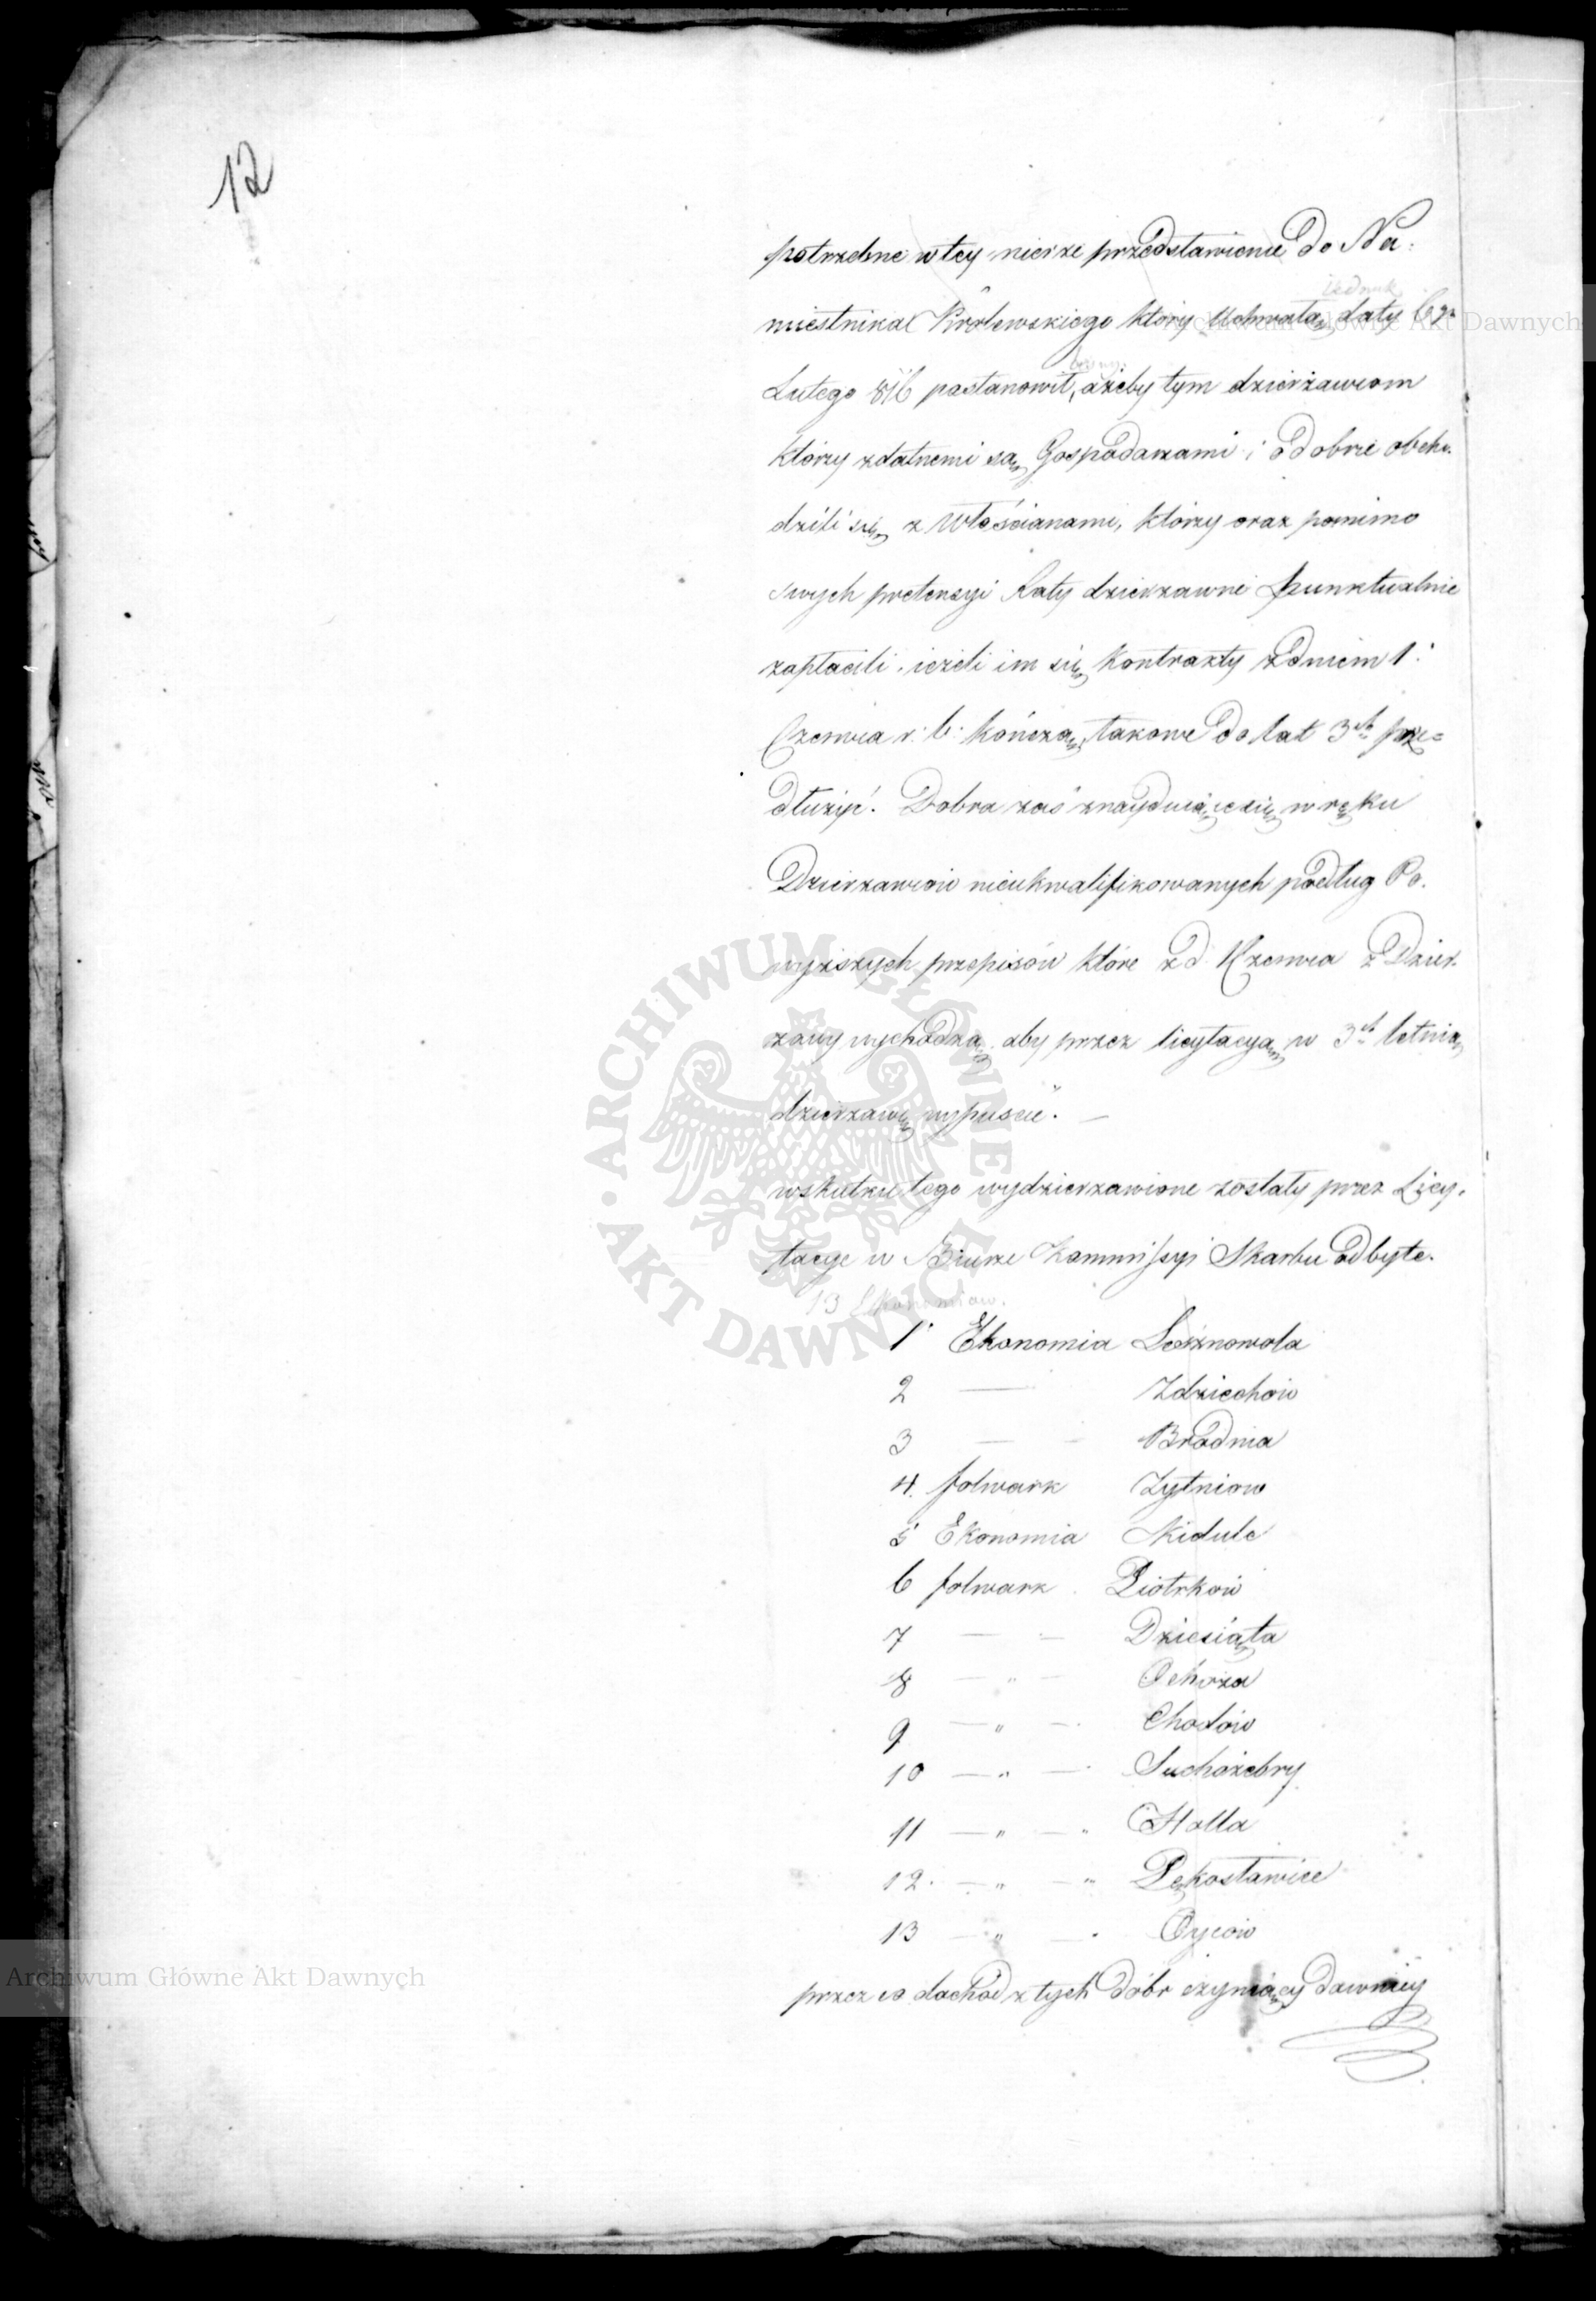 12
potrzebne w tey mierze przedstawienie do Na:
iednak
miestnika Królewskiego który Uchwałą daty 6go
Lutego 816 postanowił, ażeby tym dzierżawcom
którzy zdatnemi są Gospodarzami i dobrze obcho.
dzili się z Włościanami, którzy oraz pomimo
swych pretensyi Raty dzierzawne punktualnie
zapłacili, ieżeli im się Kontrakty z dniem 1:
Czerwca r: b: kończą, takowe do lat 3ch prze=
dłużyć. Dobra zaś znayduiące się w ręku
Dzierzawców nieukwalifikowanych podług Po.
wyższych przepisów które z d. 1 Czerwca z Dzier.
zawy wychodzą, aby przez licytacyą w 3ch letnią
dzierzawę wypuścić. —
wskutku tego wydzierzawione zostały przez Licy.
tacye w Biurze Kommissyi Skarbu odbyte.
13 Ekonomiow.
1 Ekonomia Lesznowola
2 — Zdziechów
3 — - Brodnia
4. folwark Żytniow
5 Ekonomia Kidule
6 folwark Piotrków
7 — — Dziesiąta
8 — " — Ochoza
9 — " — Chodów
10 — " — Suchożebry
11 — " — " Holla
12. — " — " Pękosławice
13 — " — " Oyców
przez co dochód z tych dóbr czyniący dawniey
Archiwum Główne Akt Dawnych
Archiwum Główne Akt Dawnych
ARCHIWUM GŁÓWNE AKT DAWNYCH